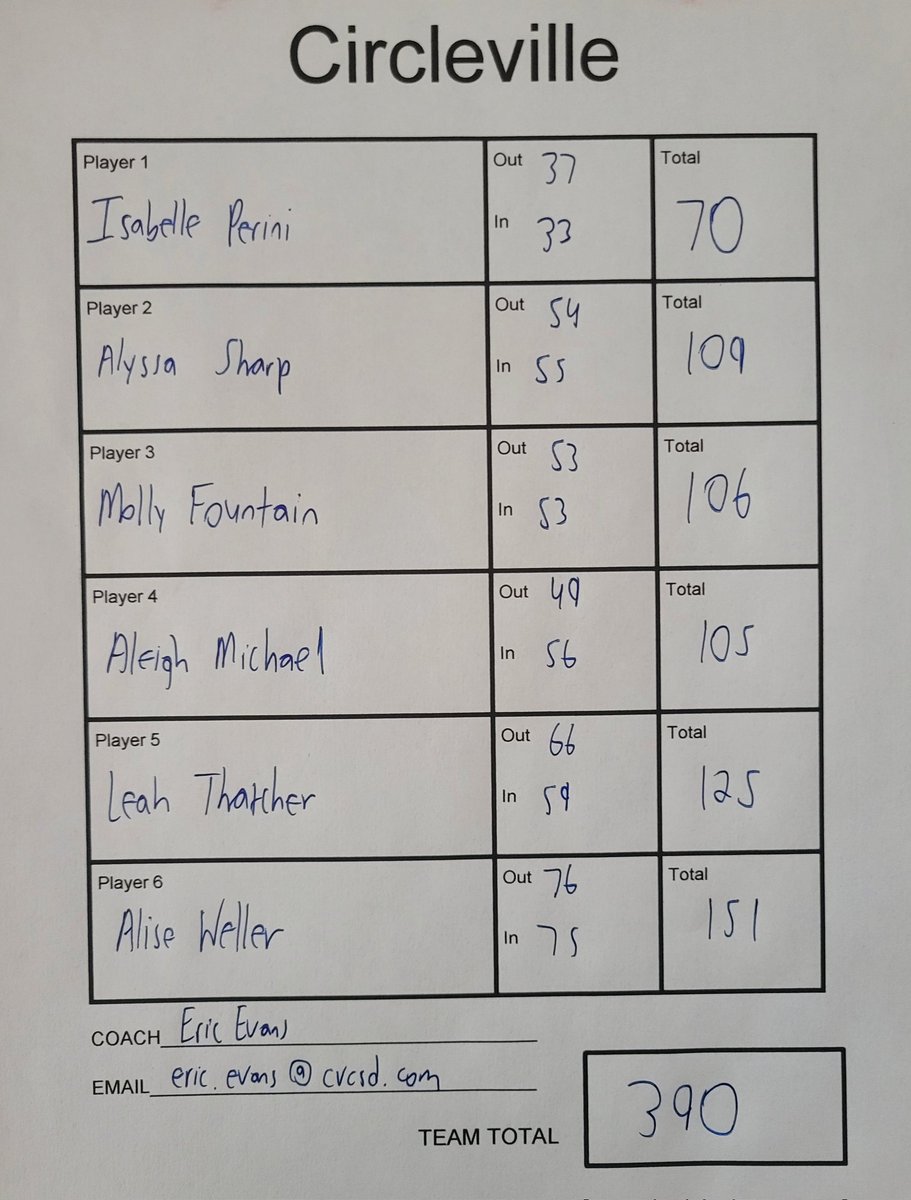 Circleville
Player 1 Out 37 Total
Isabelle Perini In 33 70
Player 2 Out 54 Total
Alyssa Sharp In 55 109
Player 3 Out 53 Total
Molly Fountain In 53 106
Player 4 Out 49 Total
Aleigh Michael In 56 105
Player 5 Out 66 Total
Leah Thatcher In 59 125
Player 6 Out 76 Total
Alise Weller In 75 151
COACH Eric Evans
EMAIL eric.evans@cvcsd.com
TEAM TOTAL 390